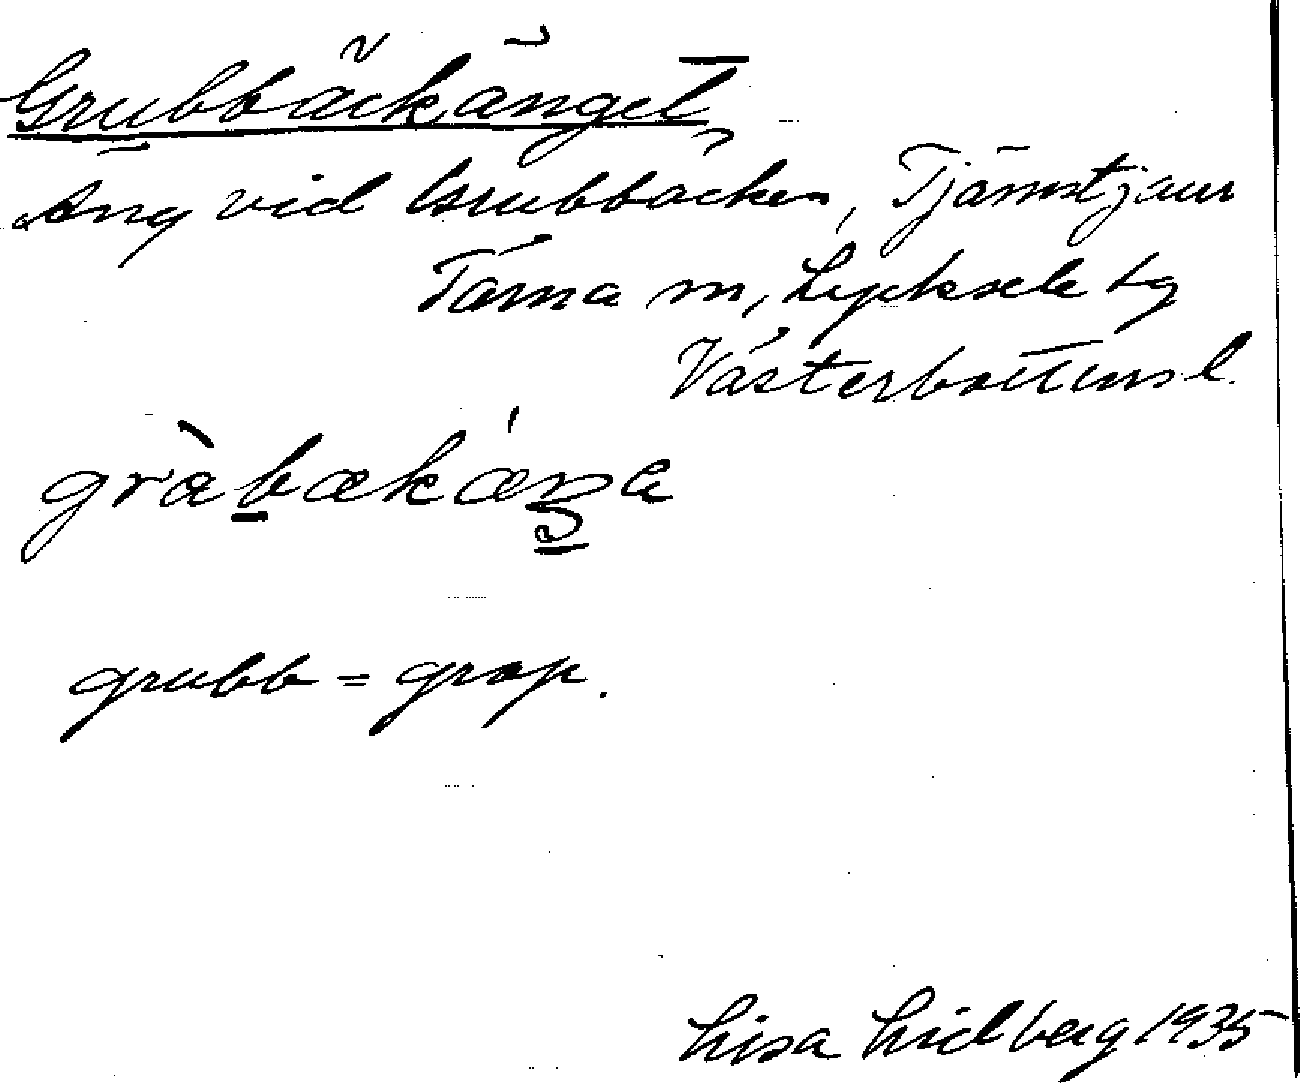 Grubbäckänget
Äng vid Grubbäcken, Tjärnstjaur
Tärna sn, Lycksele tg
Västerbottens l.
gràbækǽŋa
grubb = grop.
Lisa Lidberg 1935